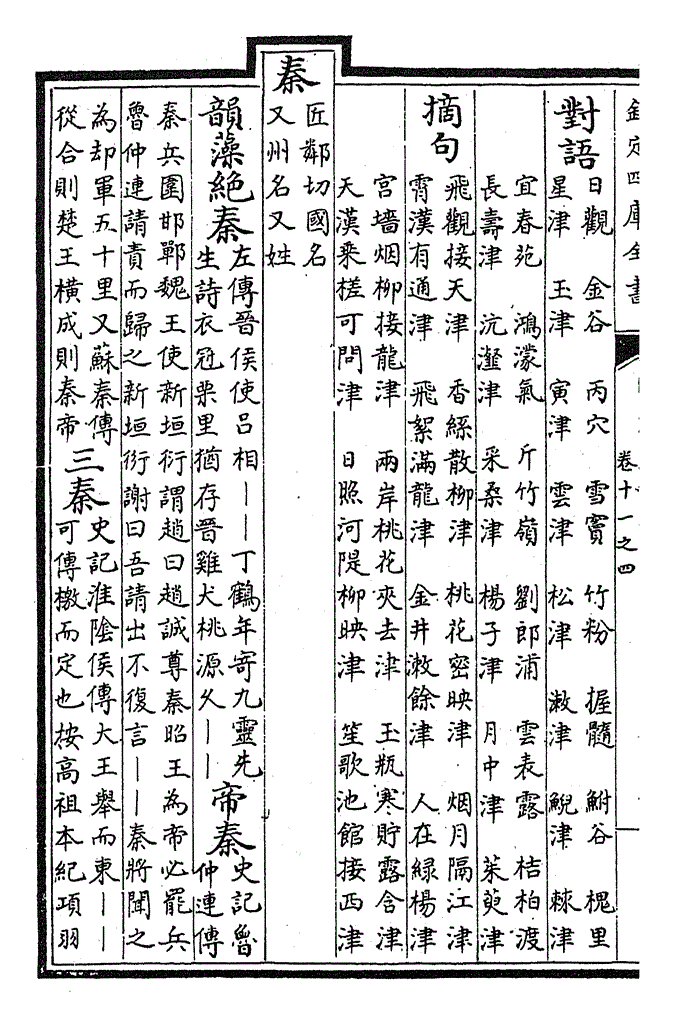 欽定四庫全書 卷十一之四
對語
日觀 金谷 丙穴 雪竇 竹粉 握髓 鮒谷 槐里
星津 玉津 寅津 雲津 松津 漱津 鯢津 棘津
宜春苑 鴻濛氣 斤竹嶺 劉郎浦 雲表露 桔柏渡
長壽津 沆瀣津 采桑津 楊子津 月中津 茱萸津
摘句
飛觀接天津 香絲散柳津 桃花密映津 烟月隔江津
霄漢有通津 飛絮滿龍津 金井漱餘津 人在緑楊津
宫墻烟柳接龍津 兩岸桃花夾去津 玉瓶寒貯露含津
天漢乘槎可問津 日照河隄柳映津 笙歌池館接西津
秦
匠鄰切國名
又州名又姓
韻藻絶秦
左傳晉侯使吕相——丁鶴年寄九靈先
生詩衣冠栗里猶存晉雞犬桃源久——
帝秦
史記魯
仲連傳
秦兵圍邯鄲魏王使新垣衍謂趙曰趙誠尊秦昭王為帝必罷兵
魯仲連請責而歸之新垣衍謝曰吾請出不復言——秦將聞之
為却軍五十里又蘇秦傳
從合則楚王橫成則秦帝
三秦
史記淮陰侯傳大王舉而東——
可傳檄而定也按高祖本紀項羽